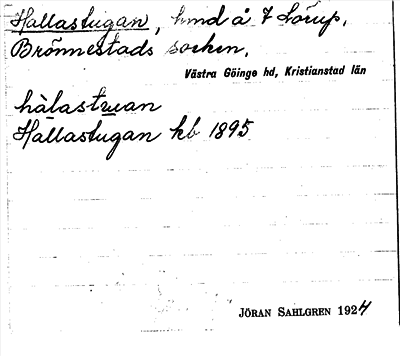 Hallastugan, hmd å 7 Lörup,
Brönnestads socken,
Västra Göinge hd, Kristianstad län
hàlastuan
Hallastugan kb 1895
JÖRAN SAHLGREN 1924